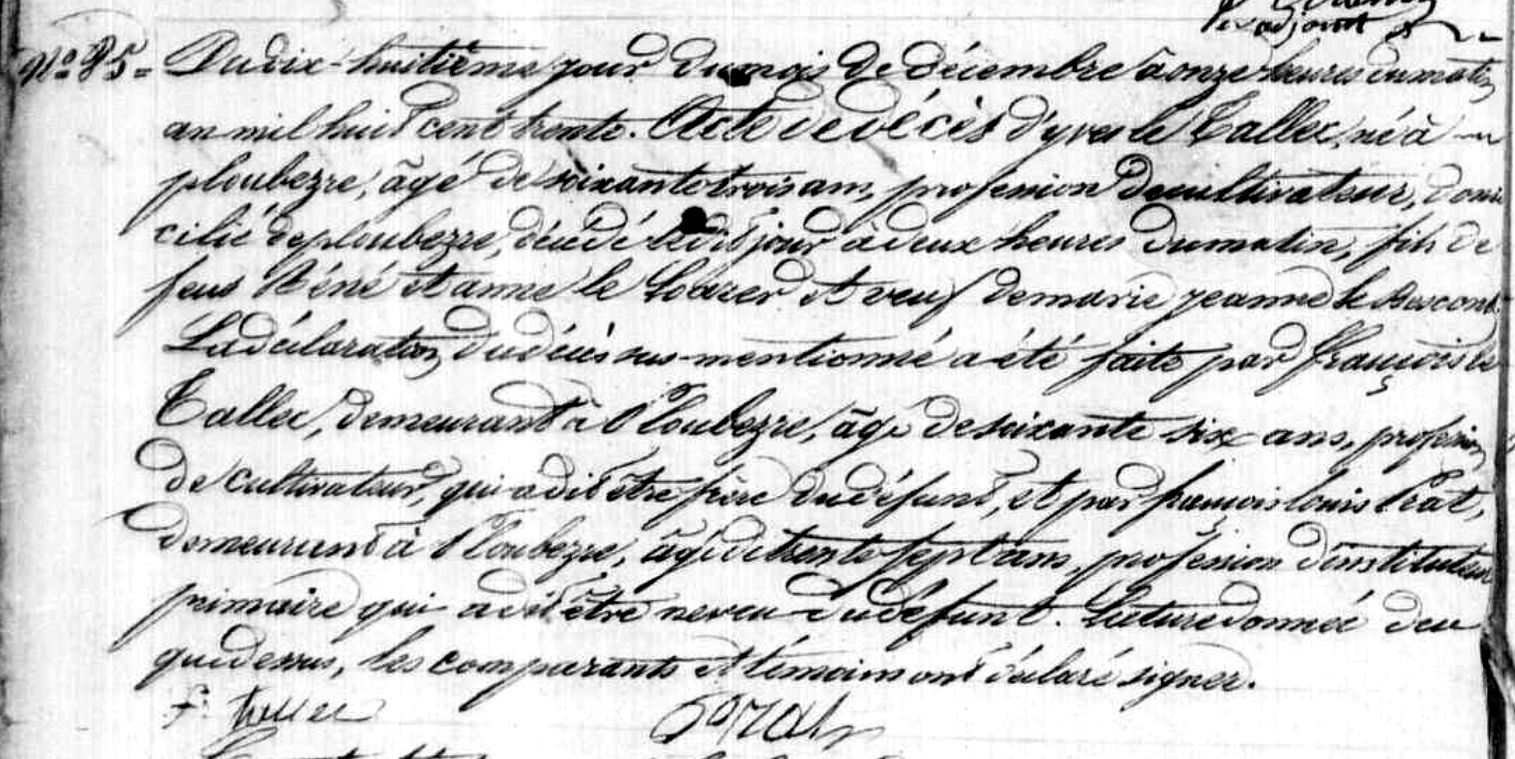 adjoint
N° 85 = Du dix-huitième jour du mois de décembre à onze heures du matin
an mil huit cent trente. Acte de décès d'yves le Tallec, né à
ploubezre, âgé de soixante trois ans, profession de cultivateur, domi
cilié de ploubezre, décédé ledit jour à deux heures du matin, fils de
feus Réné et anne le Loarer et veuf de marie jeanne le Bescont,
La déclaration du décès sus-mentionné a été faite par françois le
Tallec, demeurant à Ploubezre, âgé de soixante six ans, profession
de cultivateur, qui a dit être frère du défunt, et par françois louis Prat,
demeurant à Ploubezre, âgé de trente sept ans, profession d'instituteur
primaire qui a dit être neveu du défunt. Lecture donnée de ce
que dessus, les comparants et témoins ont déclaré signer.
f. tallec Prat